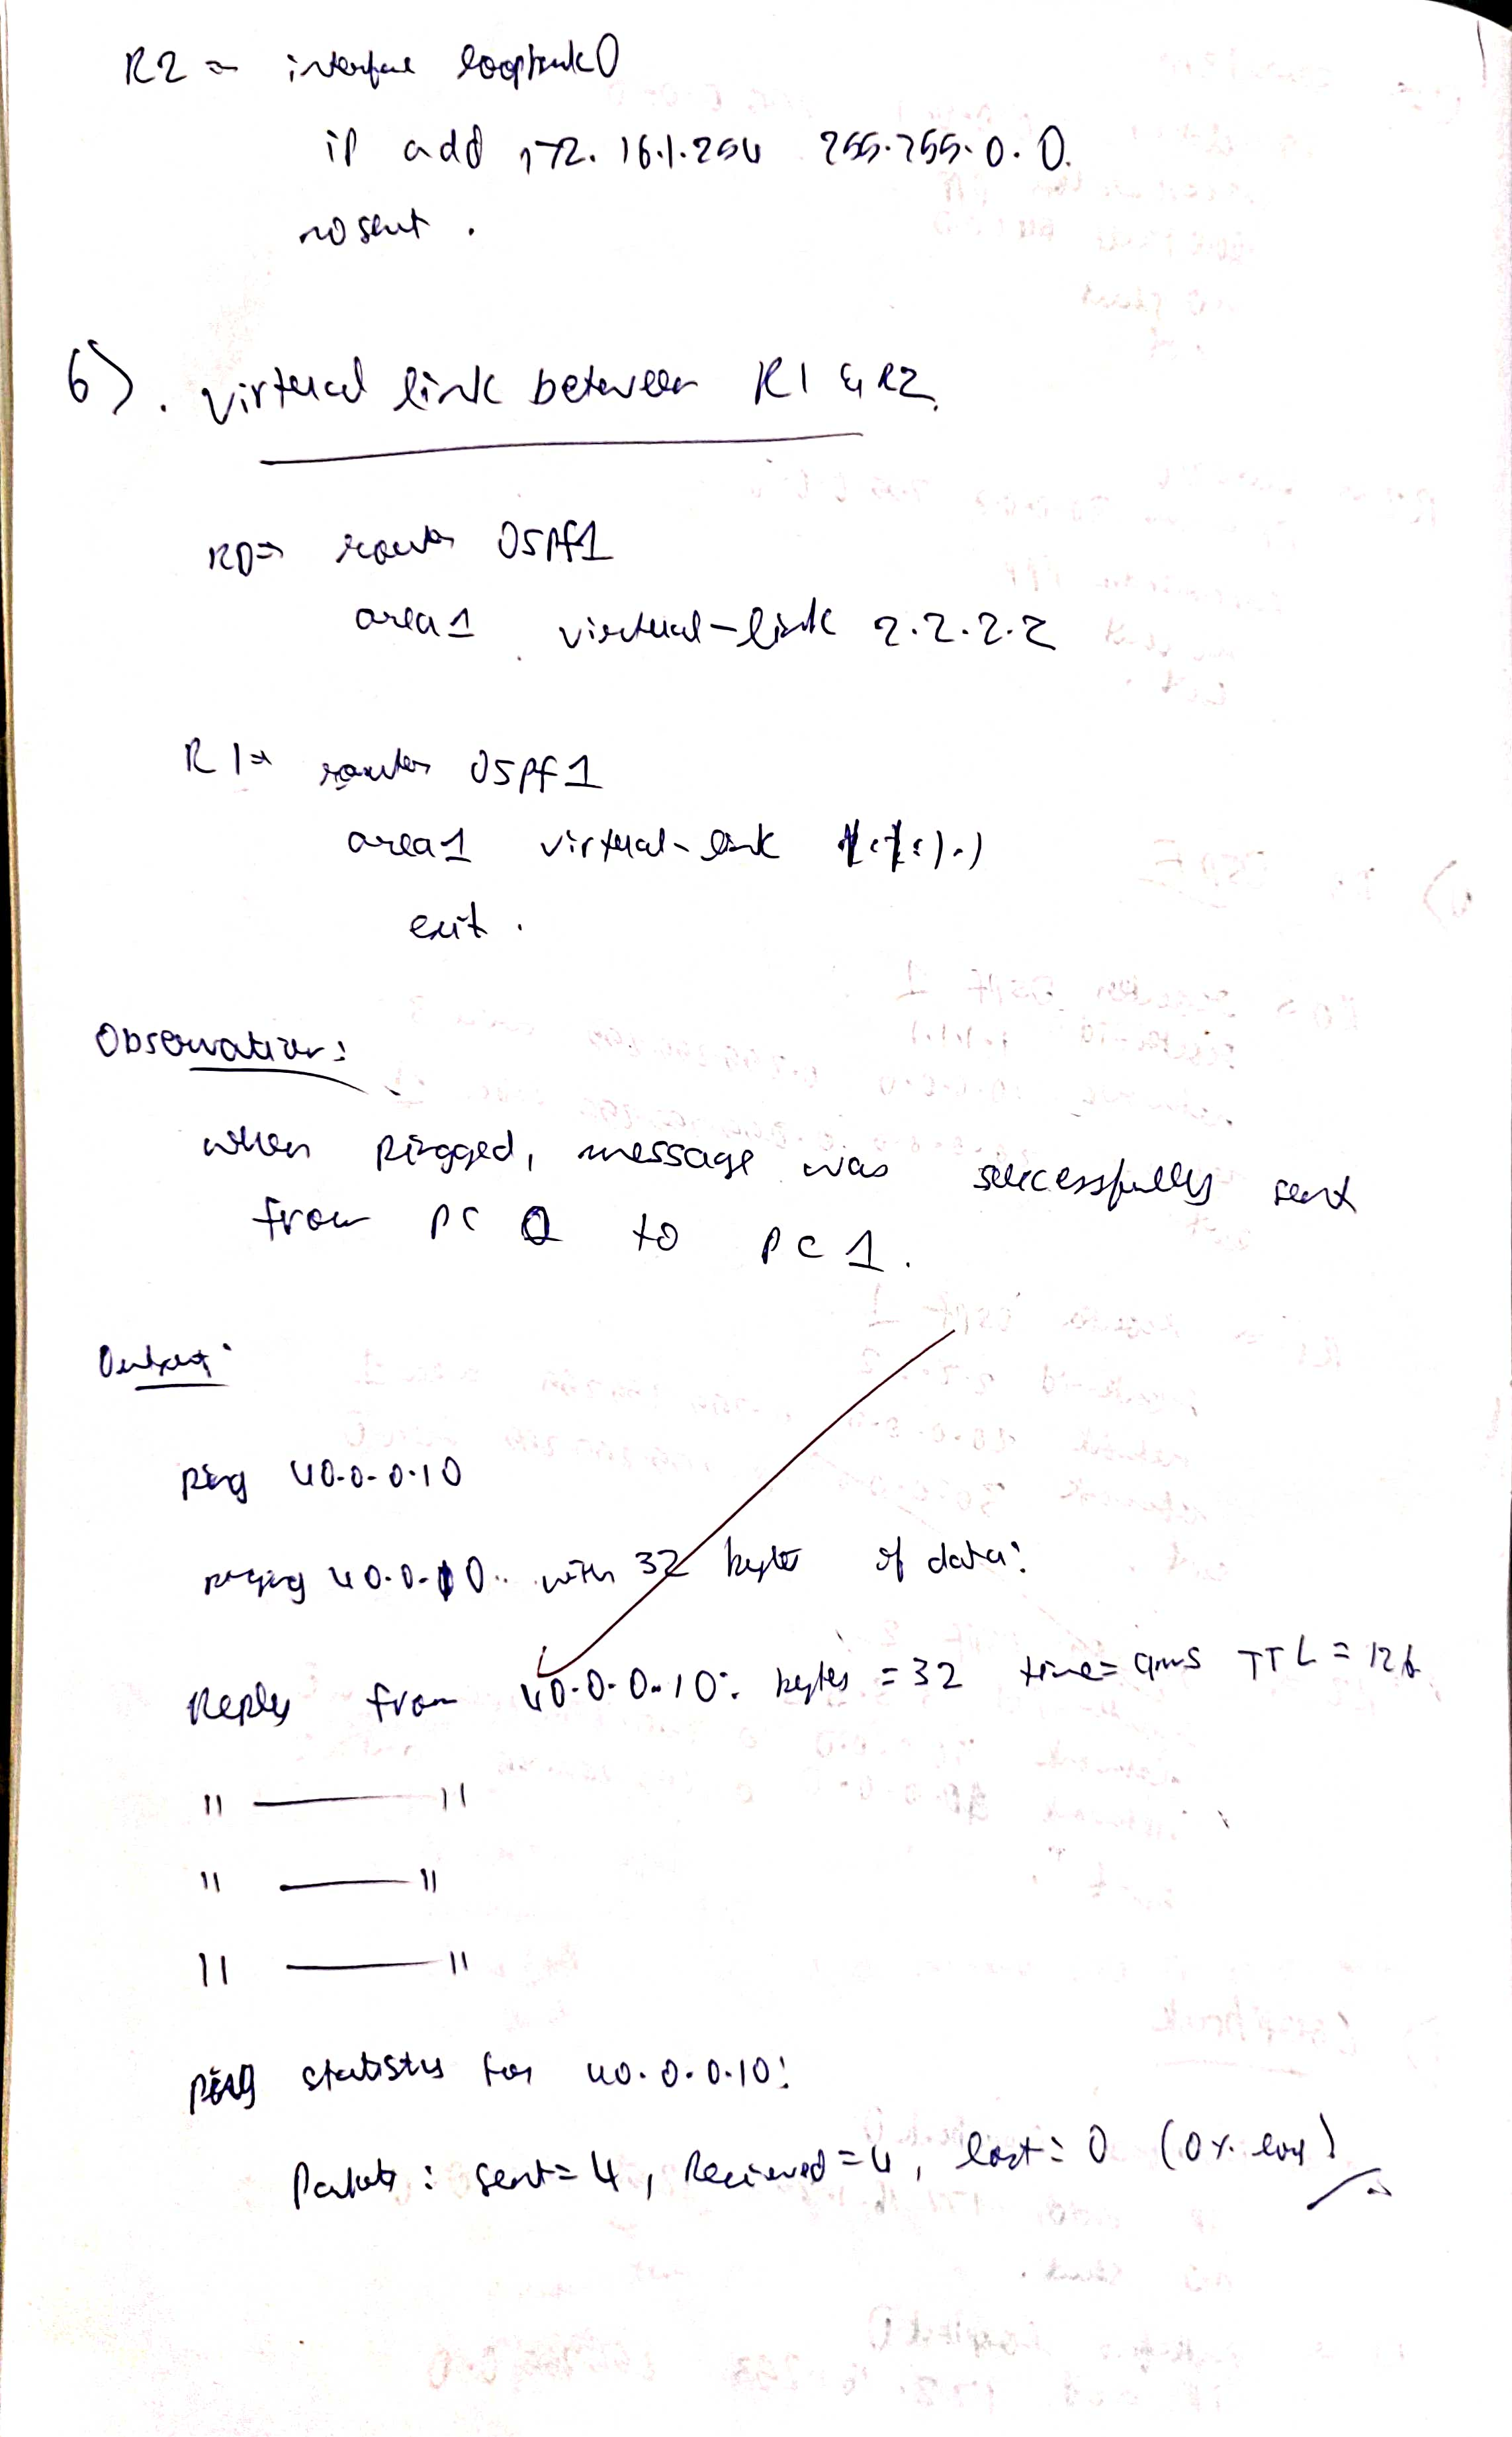 R2 => interface loopback0
ip add 172.16.1.254 255.255.0.0.
no shut .
6). virtual link between R1 & R2.
R0=> router OSPf1
area1 virtual-link 2.2.2.2
R1=> router OSPf1
area1 virtual-link 1.1.1.1
exit .
Observation:
when pinged, message was successfully sent
from PC 0 to PC 1.
Output:
Ping 40.0.0.10
40.0.10.. with 32 bytes of data:
Reply from 40.0.0.10: bytes = 32 time= 9ms TTL = 126
" —— "
" —— "
" —— "
Ping statistics for 40.0.0.10:
Packets : sent= 4, Recieved = 4, lost= 0 (0% loss)